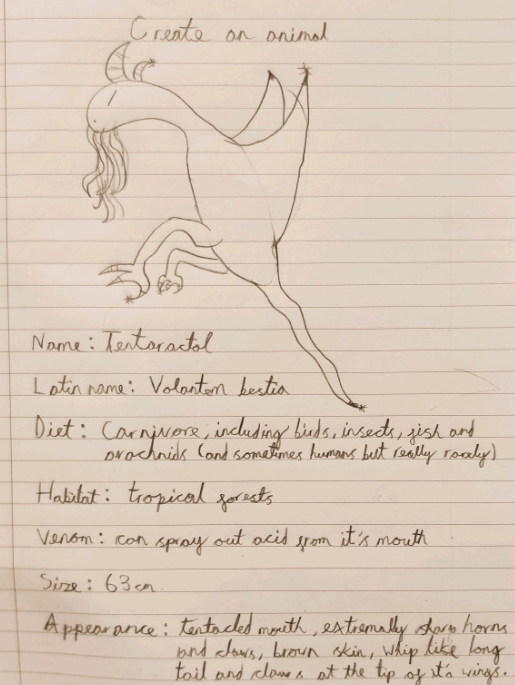 Create an animal
Name: Tentaractal
Latin name: Volantem bestia
Diet: Carnivore, including birds, insects, fish and
arachnids (and sometimes humans but really rarely)
Habitat: tropical forests
Venom: can spray out acid from it's mouth
Size: 63cm
Appearance: tentacled mouth, extremally sharp horns
and claws, brown skin, whip like long
tail and claws at the tip of it's wings.